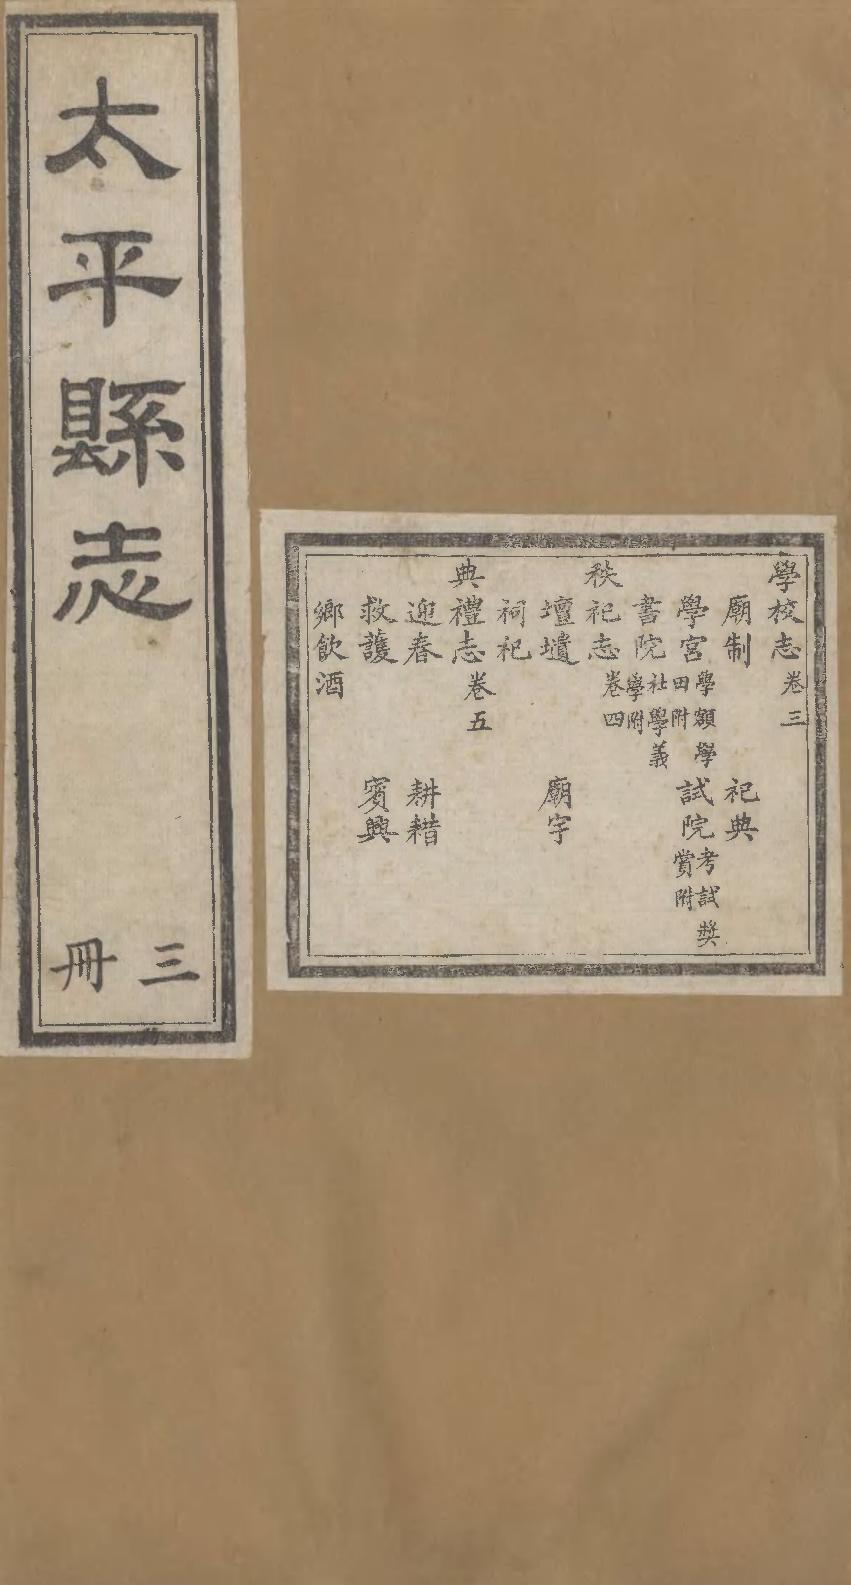 太平縣志
三冊
學校志 卷三
廟制 祀典
學宮 學額學田附 試院 考試獎賞附
書院 社學義學附
秩祀志 卷四
壇壝 廟宇
祠祀
典禮志 卷五
迎春 耕耤
救護 賓興
鄉飲酒